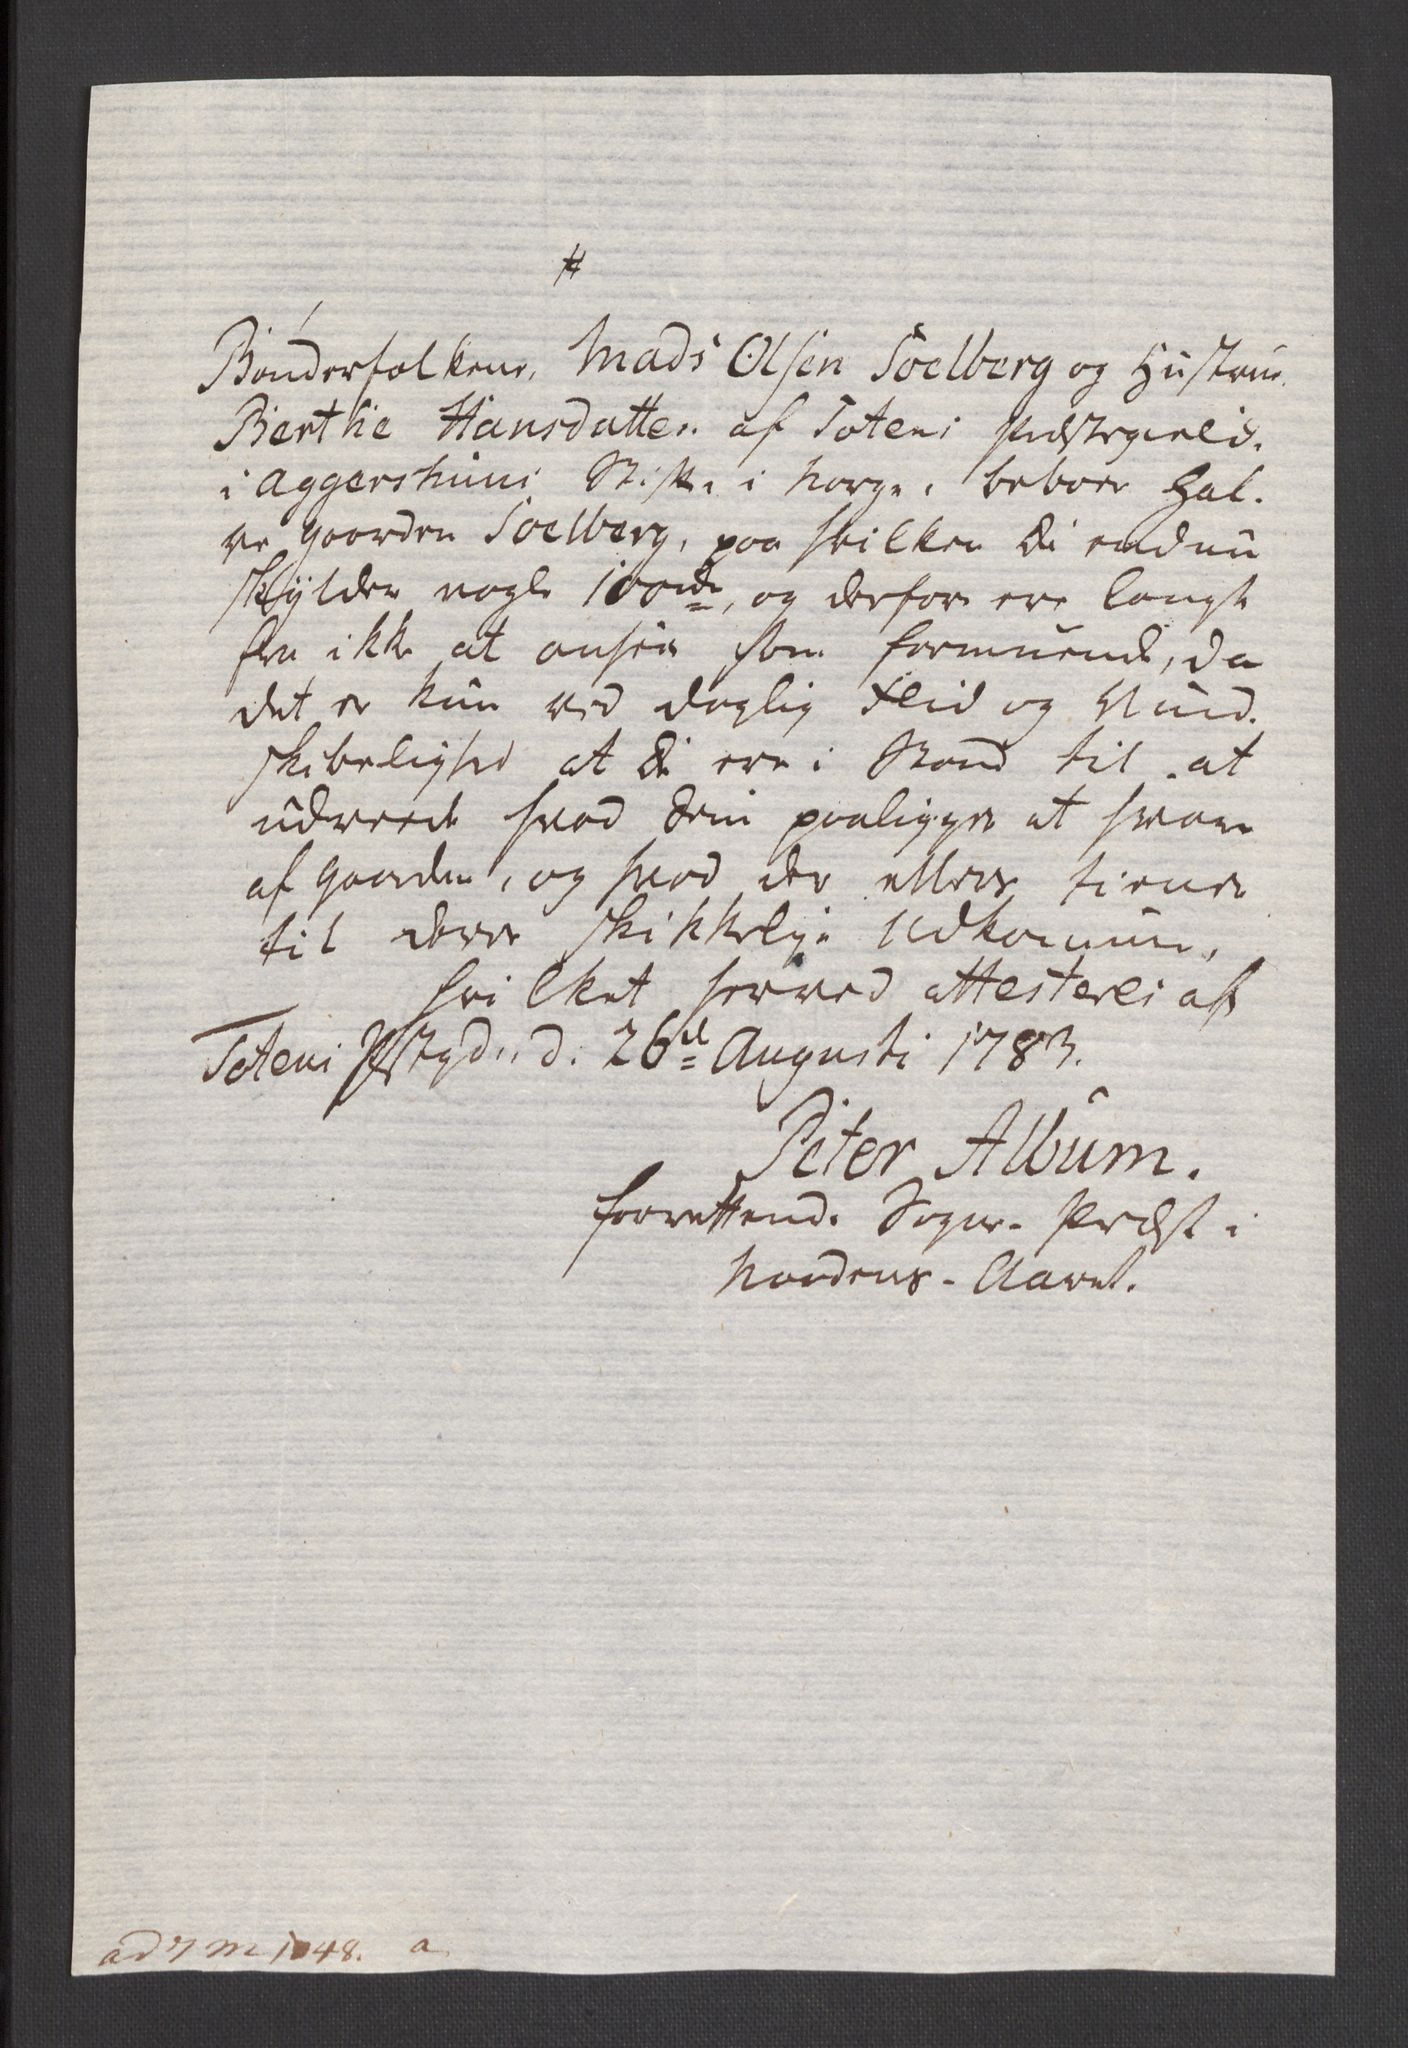 #
Bönderfolkene, Mads Olsen Soelberg og Hustrue
Berthe Hansdatter af Totens Præstegield,
i Aggershuus Stift i Norge, beboer Hal-
ve Gaarden Soelberg, paa hvilken de endnu
skylder nogle 100nde, og derfor ere langt
fra ikke at ansee som formuende, da
det er kun ved daglig Flid og Vind-
skibelighed at de ere i Stand til at
udreede hvad dem paaligger at svare
af Gaarden, og hvad der ellers tiener
til deres skikkelige Udkomme,
hvilket herved attesteres af
Totens Pstgd. d. 26de Augusti 1783.
Peter Album.
forrettende Sogne-Præst i
Naadens-Aaret.
ad 7 M 1048. a